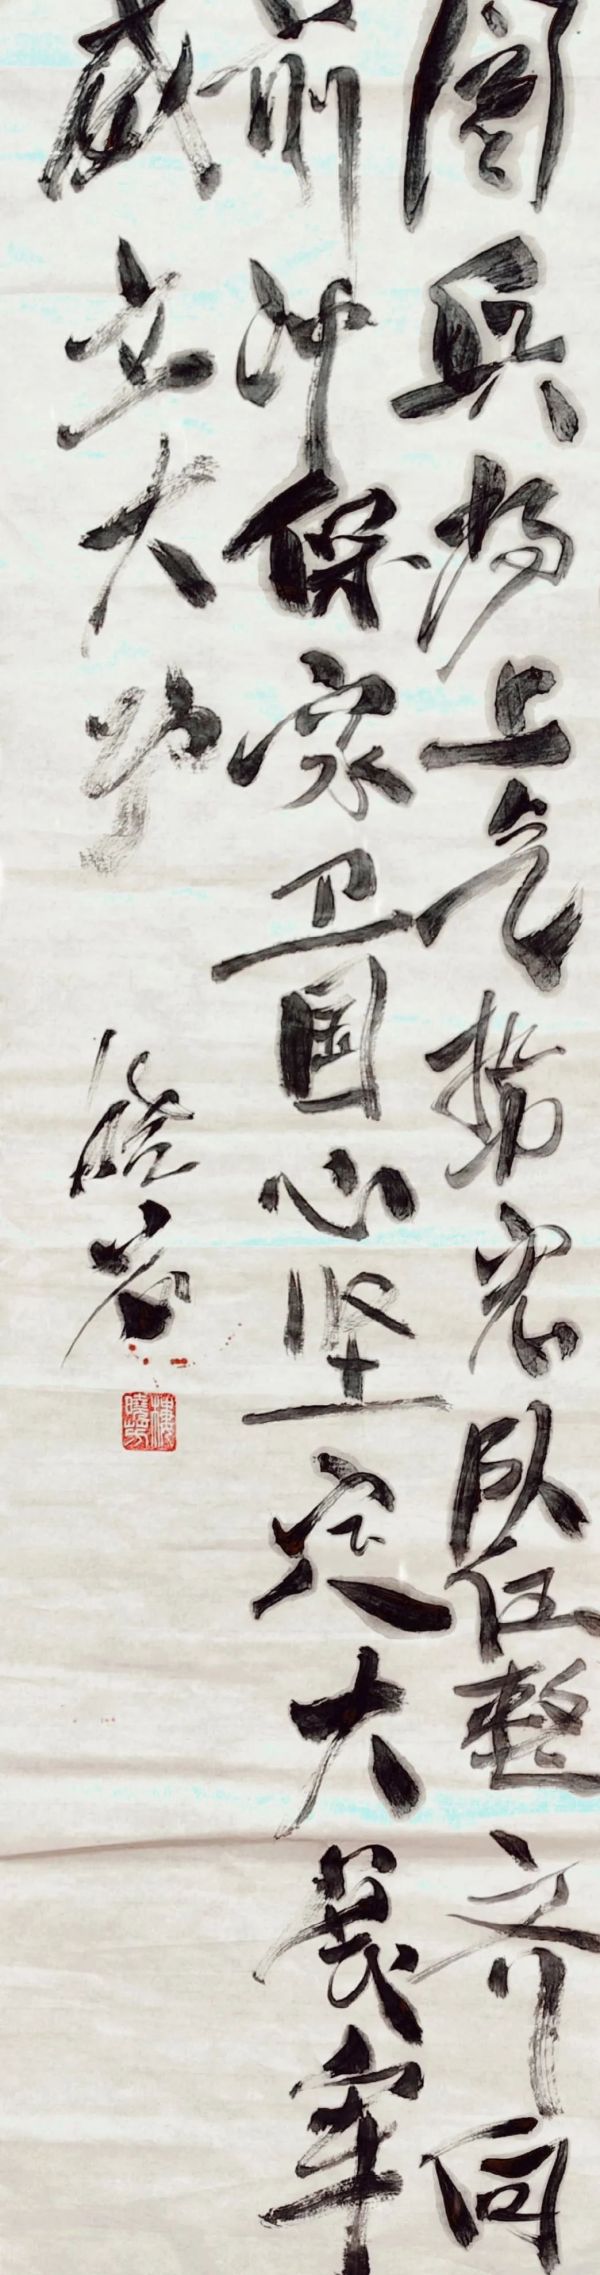 阅兵场上气势宏队伍整齐向
前冲保家卫国心坚定大裂牢
威立大功
晓岩